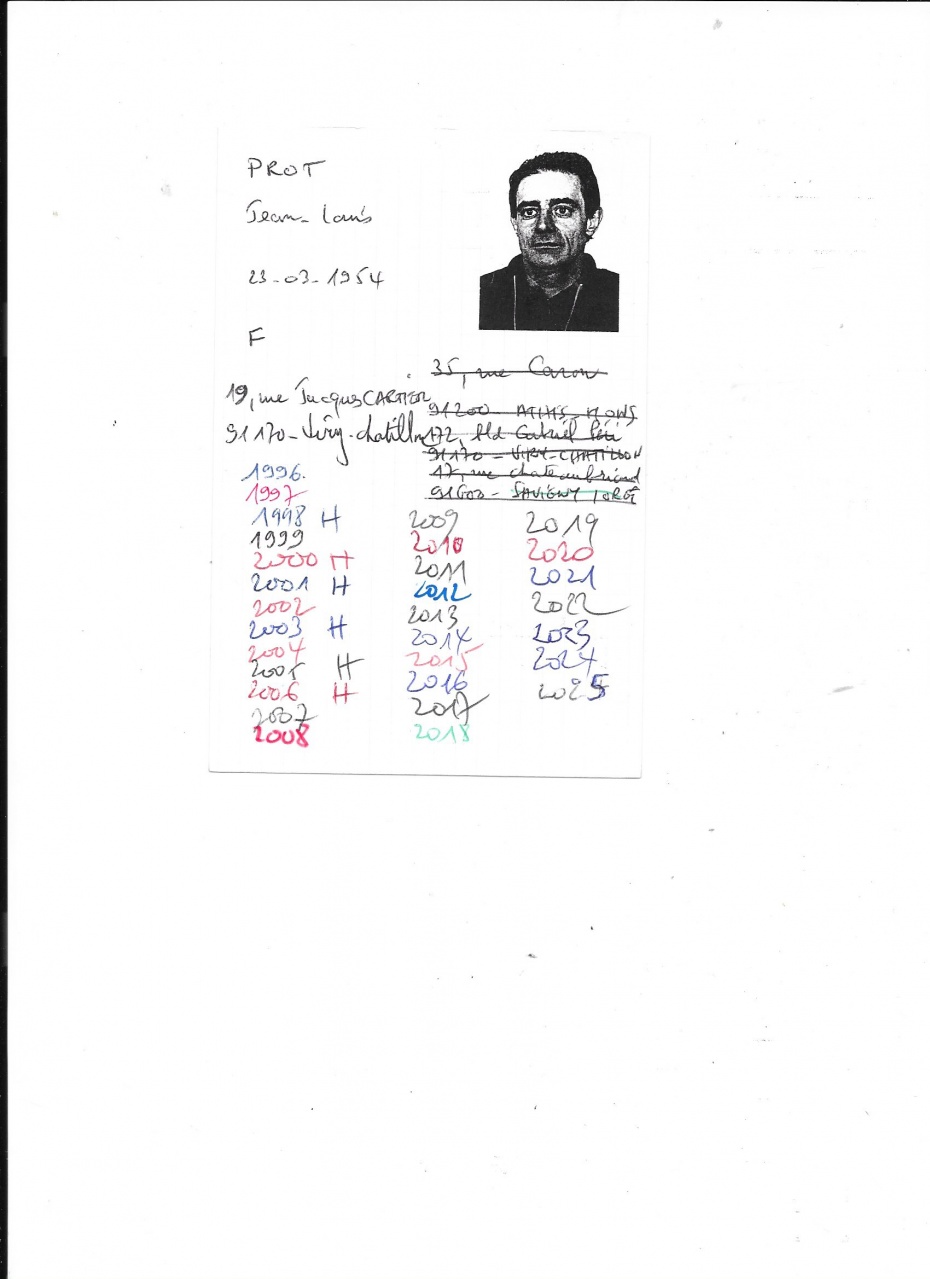 PROT
Jean-Louis
23-03-1954
F
35, rue Caron
91200 ATHIS-MONS
172, Bld Gabriel Péri
91170 - VIRY-CHATILLON
17, rue chateaubriand
91600 - SAVIGNY /ORGE
19, rue Jacques CARTIER
91170 - Viry-chatillon
1996.
1997
1998 H
1999
2000 H
2001 H
2002
2003 H
2004
2005 H
2006 H
2007
2008
2009
2010
2011
2012
2013
2014
2015
2016
2017
2018
2019
2020
2021
2022
2023
2024
2025